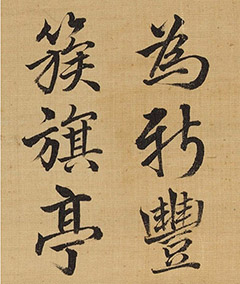 為新豐
簇旗亭